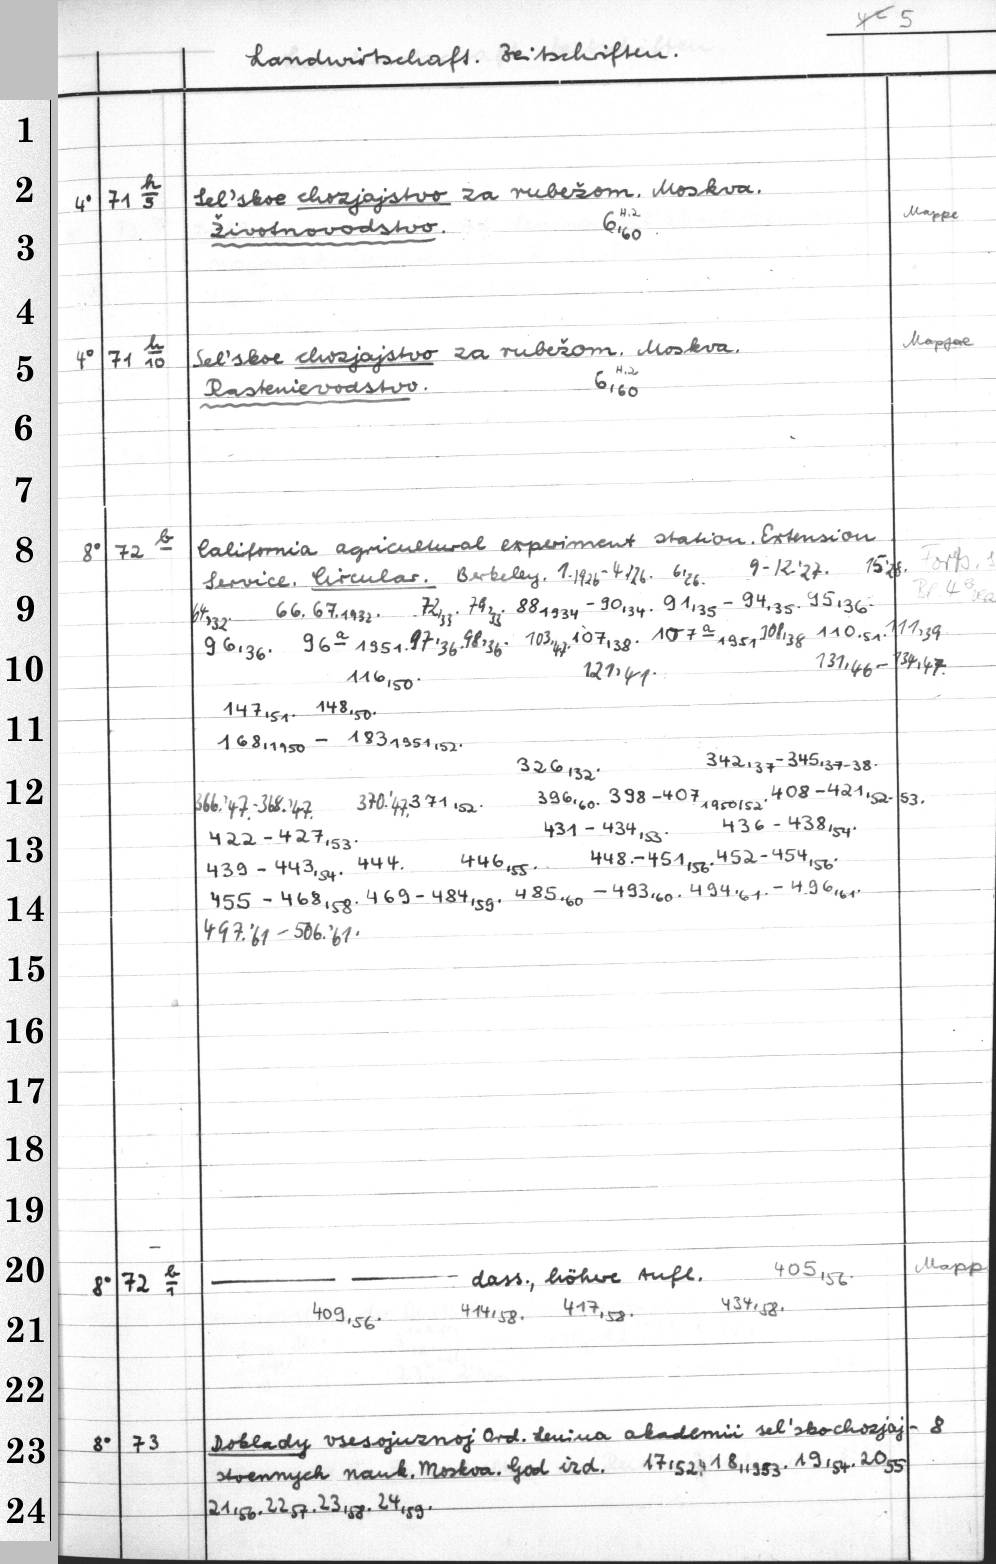 5
Landwirtschaft. Zeitschriften.
1
2 4° 71 h/5 Sel'skoe chozjajstvo za rubežom. Moskva.
Životnovodstvo. 6,60 H.2 Mappe
3
4
5 4° 71 h/10 Sel'skoe chozjajstvo za rubežom. Moskva. Mappe
Rastenievodstvo. 6,60 H.2
6
7
8 8° 72 b California agricultural experiment station. Extension
Service. Circular. Berkeley. 1.1926-4/26. 6/26. 9-12.'27. 15.'28.
9 64,32. 66. 67.1932. 72,33. 79,33. 88 1934 - 90,34. 91,35 - 94,35. 95,36.
96,36. 96a 1951. 97,'36. 98,36. 103,47. 107,38. 107a 1951 108,38 110.51. 111,39
10 116,50. 121,41. 131,46 - 134,47.
11 147,51. 148,50.
168,1950 - 183 1951,52.
326,32. 342,37-345,37-38.
12 366.'47.-368.'47. 370.'47. 371,52. 396,60. 398-407 1950/52. 408-421,52-53.
422-427,53. 431-434,53. 436-438,54.
13 439-443,54. 444. 446,55. 448.-451,56. 452-454,56.
14 455-468,58. 469-484,59. 485,60 - 493,60. 494,61. - 496,61.
497.'61 - 506.'61.
15
16
17
18
19
20 8° 72 b/1 —— —— dass., höhere Aufl. 405,56. Mapp
21 409,56. 414,58. 417,58. 434,58.
22
23 8° 73 Doklady vsesojuznoj Ord. Lenina akademii sel'skochozjaj- 8
stvennych nauk. Moskva. God izd. 17,52. 18,1953. 19,54. 20,55
24 21,56. 22,57. 23,58. 24,59.